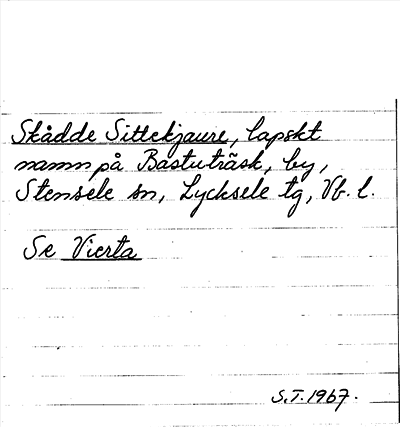 Skådde Sittekjaure, lapskt
namn på Bastuträsk, by,
Stensele sn, Lycksele tg, Vb. l.
Se Vierta
S.T. 1967.